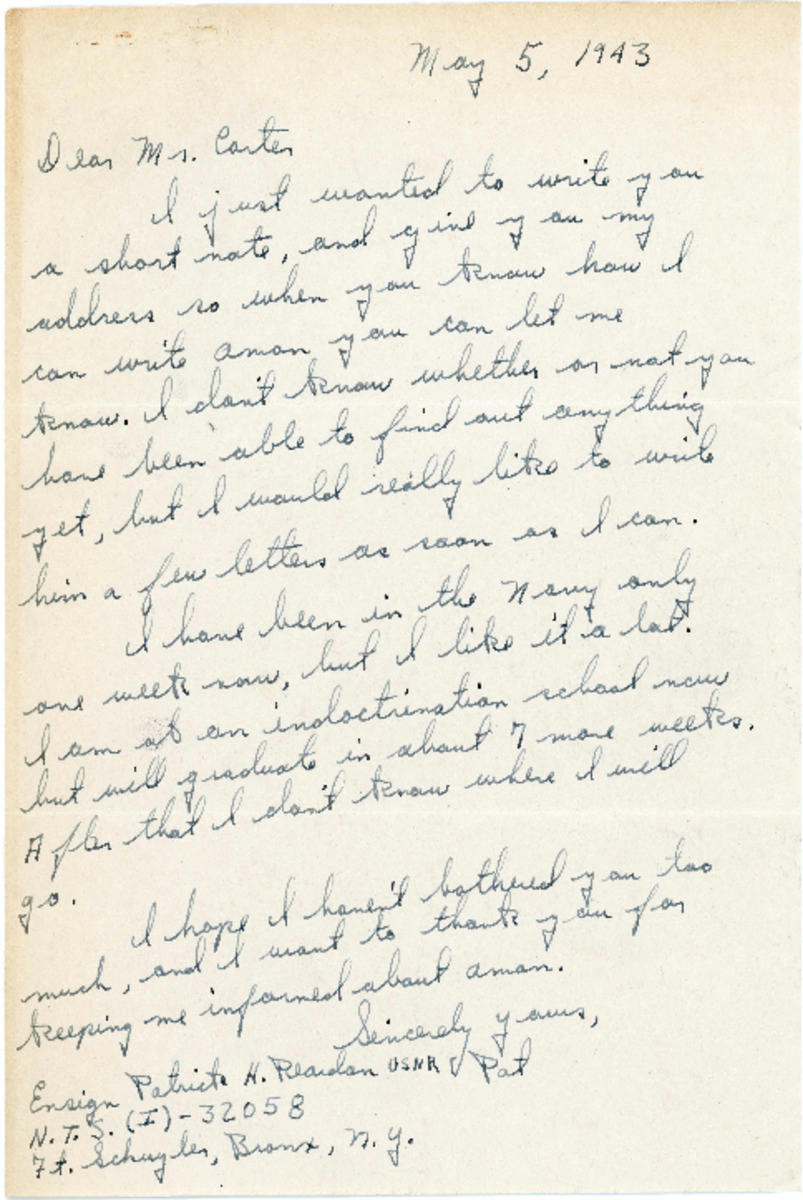 May 5, 1943
Dear Mrs. Carter
I just wanted to write you
a short note, and give you my
address so when you know how I
can write Amon you can let me
know. I don't know whether or not you
have been able to find out anything
yet, but I would really like to write
him a few letters as soon as I can.
I have been in the Navy only
one week now, but I like it a lot.
I am at an indoctrination school now
but will graduate in about 7 more weeks.
After that I don't know where I will
go.
I hope I haven't bothered you too
much, and I want to thank you for
keeping me informed about Amon.
Sincerely yours,
Pat
Ensign Patrick H. Reardon USNR
N.T.S. (I)-32058
Ft. Schuyler, Bronx, N.Y.